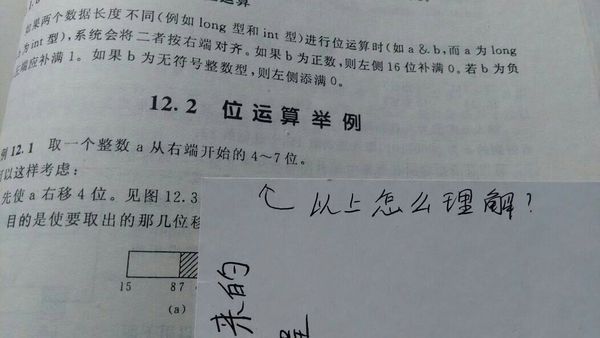 如果两个数据长度不同(例如 long 型和 int 型)进行位运算时(如 a & b,而 a 为 long
为 int 型),系统会将二者按右端对齐。如果 b 为正数,则左侧 16 位补满 0。若 b 为负
端应补满 1。如果 b 为无符号整数型,则左侧添满 0。
12.2 位运算举例
例 12.1 取一个整数 a 从右端开始的 4～7 位。
可以这样考虑:
先使 a 右移 4 位。见图 12.3
目的是使要取出的那几位移
↖ 以上怎么理解?
15 87
(a)
来的